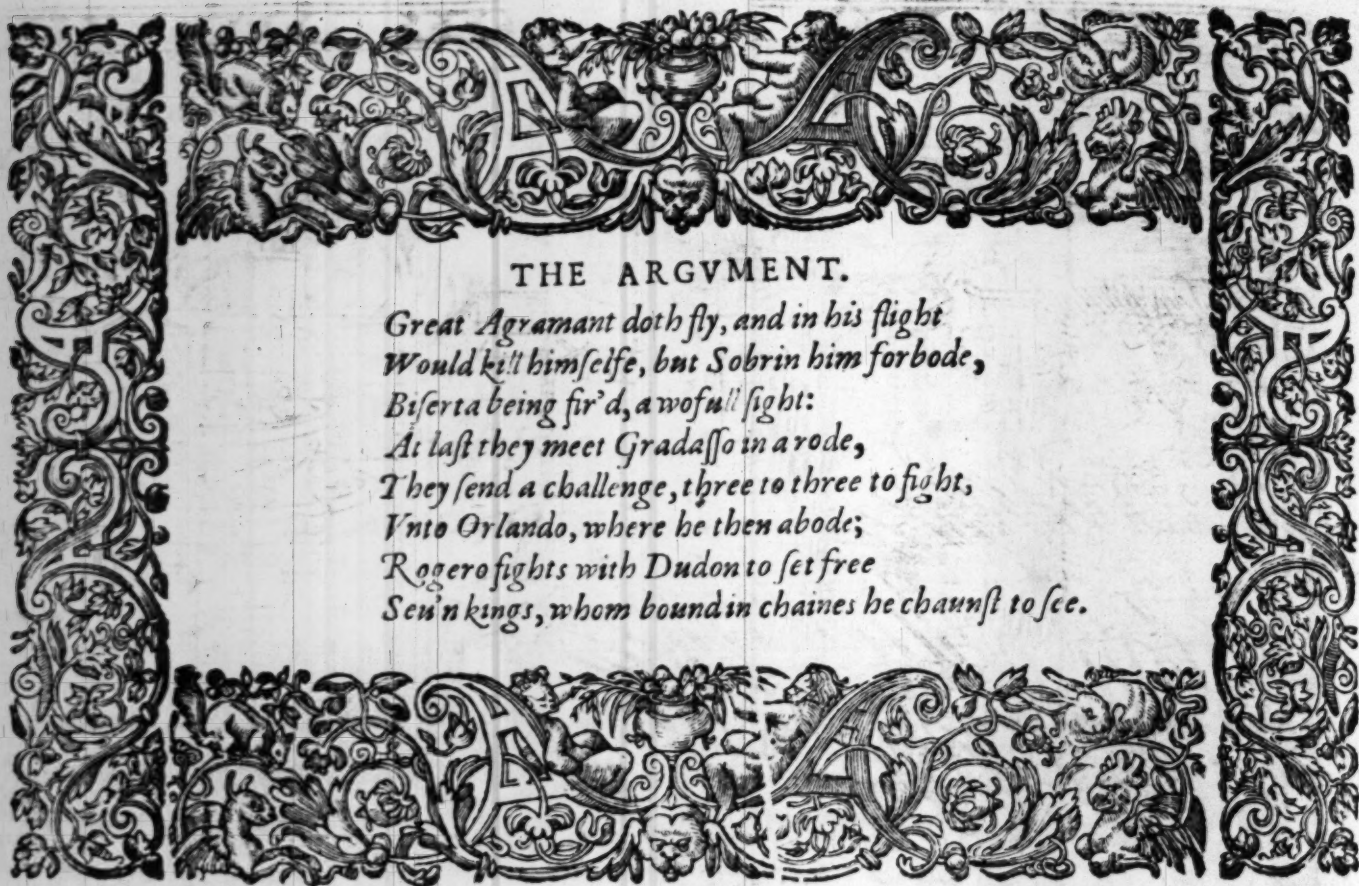 THE ARGVMENT.
Great Agramant doth fly, and in his flight
Would kill himſelfe, but Sobrin him forbode,
Biſerta being fir'd, a wofull ſight:
At laſt they meet Gradaſſo in a rode,
They ſend a challenge, three to three to fight,
Vnto Orlando, where he then abode;
Rogero fights with Dudon to ſet free
Seu'n kings, whom bound in chaines he chaunſt to ſee.